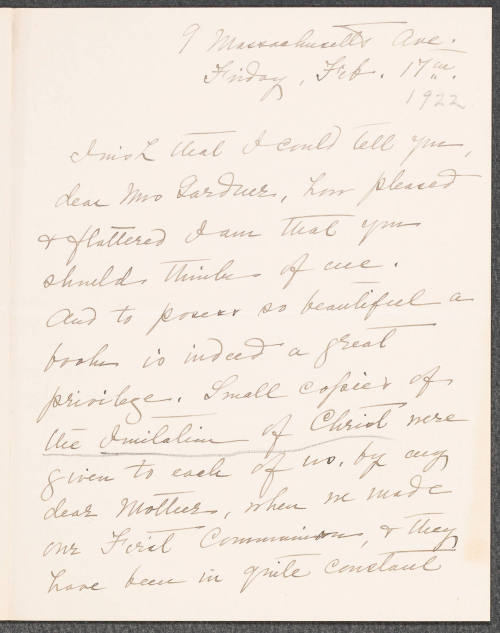 9 Massachusetts Ave.
Friday, Feb. 17th.
1922
I wish that I could tell you,
dear Mrs Gardner, how pleased
& flattered I am that you
should think of me.
And to possess so beautiful a
book is indeed a great
privilege. Small copies of
the Imitation of Christ were
given to each of us, by my
dear Mother, when we made
our First Communion, & they
have been in quite constant